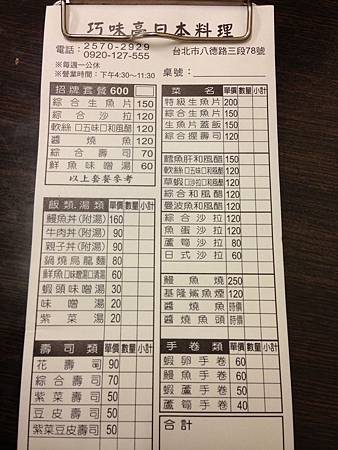 巧味亭日本料理
電話：2570-2929
0920-127-555
台北市八德路三段78號
※每週一公休
※營業時間：下午4:30～11:30
桌號：
招牌套餐 600
綜合生魚片 150
綜合沙拉 120
軟絲□五味□和風醋 120
醬燒魚 120
綜合壽司 70
鮮魚味噌湯 60
以上套餐參考
飯類.湯類 單價 數量 小計
鰻魚丼(附湯) 160
牛肉丼(附湯) 90
親子丼(附湯) 90
鍋燒烏龍麵 80
鮮魚□味噌湯□清湯 60
蝦頭味噌湯 30
味噌湯 20
紫菜湯 20
壽司類 單價 數量 小計
花壽司 90
綜合壽司 70
紫菜壽司 50
豆皮壽司 50
紫菜豆皮壽司 50
菜名 單價 數量 小計
特級生魚片 200
綜合生魚片 150
生魚片蓋飯 150
綜合握壽司 120
鱈魚肝和風醋 120
軟絲□五味□和風醋 120
草蝦□沙拉□和風醋 120
曼波魚和風醋 120
綜合沙拉 120
魚蛋沙拉 120
蘆筍沙拉 80
日式沙拉 60
鰻魚燒 250
基隆鯊魚煙 120
醬燒魚 時價
醬燒魚頭 時價
手卷類 單價 數量 小計
蝦卵手卷 60
鰻魚手卷 60
蝦蘆手卷 50
蘆筍手卷 40
合計